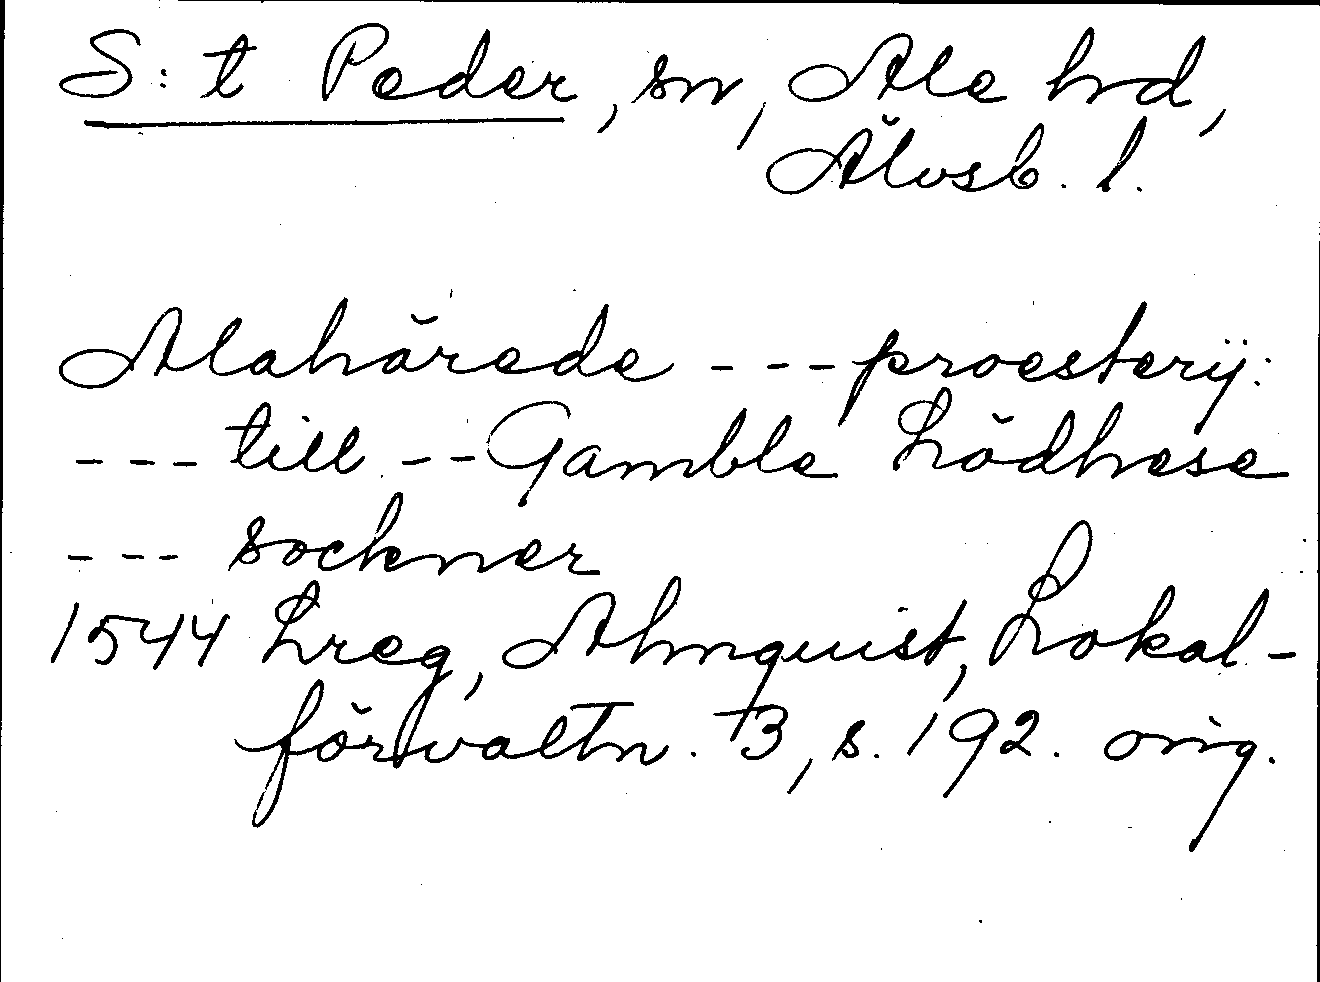 S:t Peder, sn, Ale hd,
Älvsb. l.
Alahärede --- proesterij:
--- till -- Gamble Lödhese
--- sochner
1544 Lreg, Almquist, Lokal-
förvaltn. B, s. 192. orig.